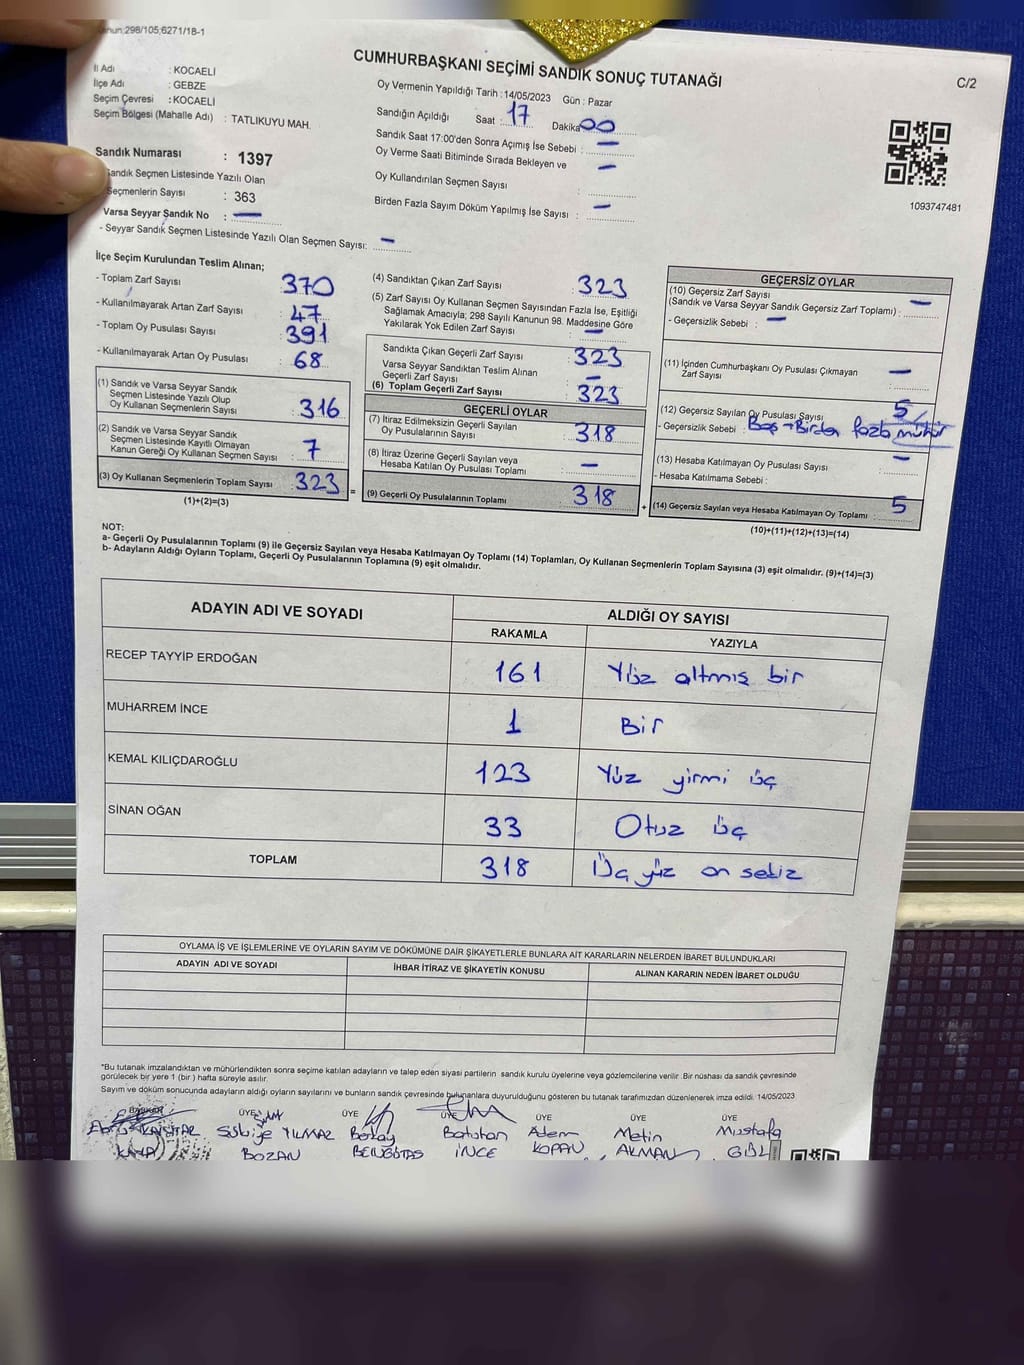 Kanun:298/105;6271/18-1
CUMHURBAŞKANI SEÇİMİ SANDIK SONUÇ TUTANAĞI
C/2
İl Adı : KOCAELİ
İlçe Adı : GEBZE
Seçim Çevresi : KOCAELİ
Seçim Bölgesi (Mahalle Adı) : TATLIKUYU MAH.
Sandık Numarası : 1397
Sandık Seçmen Listesinde Yazılı Olan
Seçmenlerin Sayısı : 363
Varsa Seyyar Sandık No : —
- Seyyar Sandık Seçmen Listesinde Yazılı Olan Seçmen Sayısı: —
Oy Vermenin Yapıldığı Tarih : 14/05/2023 Gün : Pazar
Sandığın Açıldığı Saat : 17 Dakika 00
Sandık Saat 17:00'den Sonra Açımış İse Sebebi : —
Oy Verme Saati Bitiminde Sırada Bekleyen ve —
Oy Kullandırılan Seçmen Sayısı :
Birden Fazla Sayım Döküm Yapılmış İse Sayısı : —
1093747481
İlçe Seçim Kurulundan Teslim Alınan;
- Toplam Zarf Sayısı : 370
- Kullanılmayarak Artan Zarf Sayısı : 47
- Toplam Oy Pusulası Sayısı : 391
- Kullanılmayarak Artan Oy Pusulası : 68
(1) Sandık ve Varsa Seyyar Sandık
Seçmen Listesinde Yazılı Olup
Oy Kullanan Seçmenlerin Sayısı : 316
(2) Sandık ve Varsa Seyyar Sandık
Seçmen Listesinde Kayıtlı Olmayan
Kanun Gereği Oy Kullanan Seçmen Sayısı : 7
(3) Oy Kullanan Seçmenlerin Toplam Sayısı : 323
(1)+(2)=(3)
(4) Sandıktan Çıkan Zarf Sayısı : 323
(5) Zarf Sayısı Oy Kullanan Seçmen Sayısından Fazla İse, Eşitliği
Sağlamak Amacıyla; 298 Sayılı Kanunun 98. Maddesine Göre
Yakılarak Yok Edilen Zarf Sayısı : —
Sandıkta Çıkan Geçerli Zarf Sayısı : 323
Varsa Seyyar Sandıktan Teslim Alınan
Geçerli Zarf Sayısı : —
(6) Toplam Geçerli Zarf Sayısı : 323
GEÇERLİ OYLAR
(7) İtiraz Edilmeksizin Geçerli Sayılan
Oy Pusulalarının Sayısı : 318
(8) İtiraz Üzerine Geçerli Sayılan veya
Hesaba Katılan Oy Pusulası Toplamı : —
= (9) Geçerli Oy Pusulalarının Toplamı : 318
GEÇERSİZ OYLAR
(10) Geçersiz Zarf Sayısı
(Sandık ve Varsa Seyyar Sandık Geçersiz Zarf Toplamı) : —
- Geçersizlik Sebebi : —
(11) İçinden Cumhurbaşkanı Oy Pusulası Çıkmayan
Zarf Sayısı : —
(12) Geçersiz Sayılan Oy Pusulası Sayısı : 5
- Geçersizlik Sebebi : Boş + Birden fazla mühür
(13) Hesaba Katılmayan Oy Pusulası Sayısı : —
- Hesaba Katılmama Sebebi :
+ (14) Geçersiz Sayılan veya Hesaba Katılmayan Oy Toplamı : 5
(10)+(11)+(12)+(13)=(14)
NOT:
a- Geçerli Oy Pusulalarının Toplamı (9) ile Geçersiz Sayılan veya Hesaba Katılmayan Oy Toplamı (14) Toplamları, Oy Kullanan Seçmenlerin Toplam Sayısına (3) eşit olmalıdır. (9)+(14)=(3)
b- Adayların Aldığı Oyların Toplamı, Geçerli Oy Pusulalarının Toplamına (9) eşit olmalıdır.
ADAYIN ADI VE SOYADI ALDIĞI OY SAYISI
RAKAMLA YAZIYLA
RECEP TAYYİP ERDOĞAN 161 Yüz altmış bir
MUHARREM İNCE 1 Bir
KEMAL KILIÇDAROĞLU 123 Yüz yirmi üç
SİNAN OĞAN 33 Otuz üç
TOPLAM 318 Üç yüz on sekiz
OYLAMA İŞ VE İŞLEMLERİNE VE OYLARIN SAYIM VE DÖKÜMÜNE DAİR ŞİKAYETLERLE BUNLARA AİT KARARLARIN NELERDEN İBARET BULUNDUKLARI
ADAYIN ADI VE SOYADI İHBAR İTİRAZ VE ŞİKAYETİN KONUSU ALINAN KARARIN NEDEN İBARET OLDUĞU
*Bu tutanak imzalandıktan ve mühürlendikten sonra seçime katılan adayların ve talep eden siyasi partilerin sandık kurulu üyelerine veya gözlemcilerine verilir. Bir nüshası da sandık çevresinde
görülecek bir yere 1 (bir) hafta süreyle asılır.
Sayım ve döküm sonucunda adayların aldığı oyların sayılarını ve bunların sandık çevresinde bulunanlara duyurulduğunu gösteren bu tutanak tarafımızdan düzenlenerek imza edildi. 14/05/2023
BAŞKAN ÜYE ÜYE ÜYE ÜYE ÜYE ÜYE
YILMAZ Batuhan Adem Metin Mustafa
KAYA BOZAN İNCE AKMAN GÜL